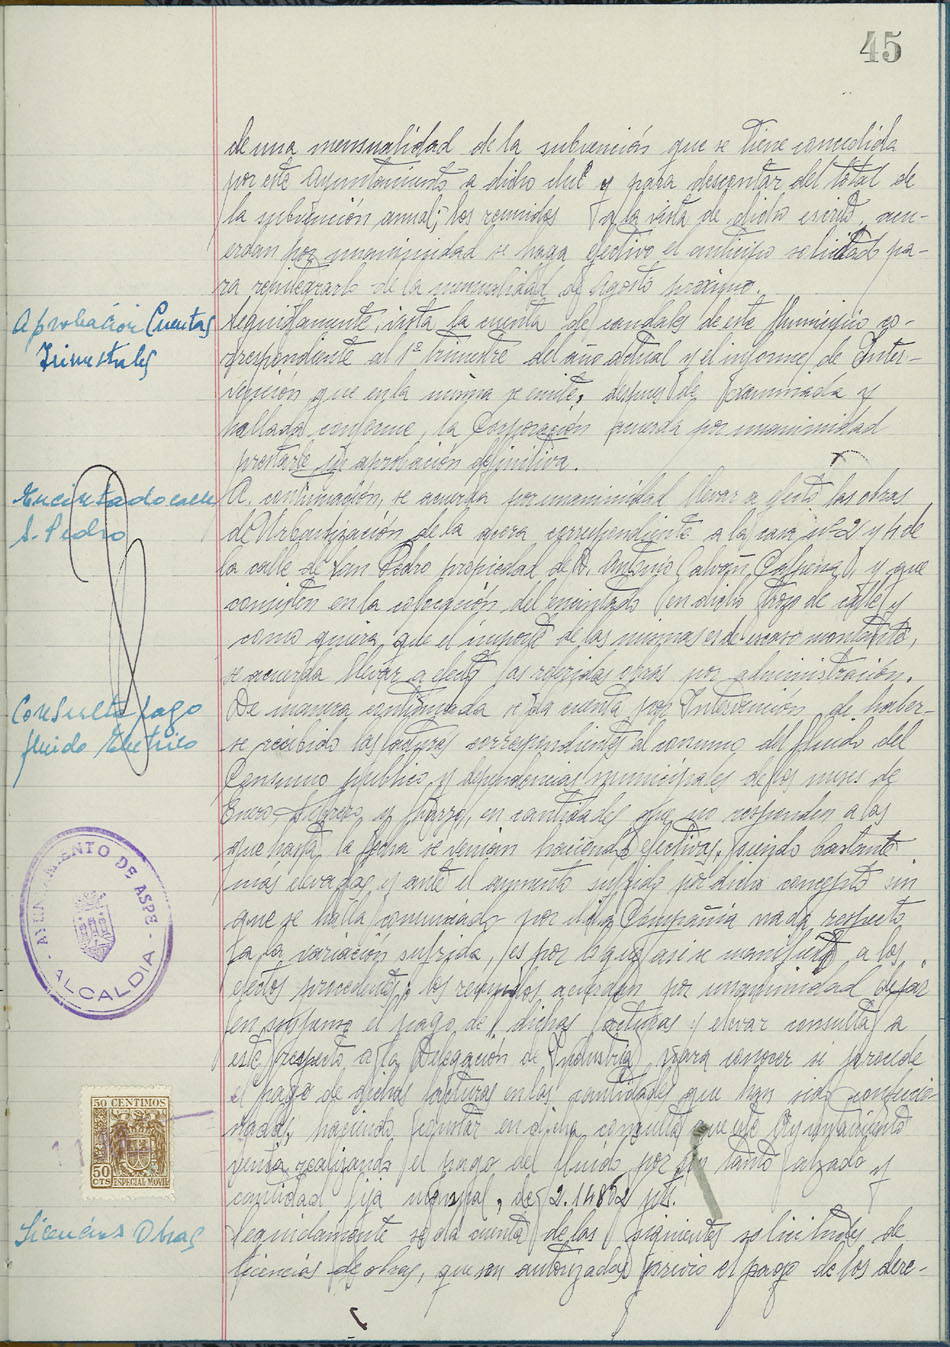 45
de una mensualidad de la subvención que se tiene concedida
por este Ayuntamiento a dicho club y para descontar del total de
la subvención anual; los reunidos a la vista de dicho escrito, acu-
erdan por unanimidad se haga efectivo el anticipo solicitado pa-
ra reintegrarlo de la mensualidad de Agosto próximo.
Aprobación Cuentas
Trimestrales
Seguidamente, vista la cuenta de caudales de este Municipio co-
rrespondiente al 1º trimestre del año actual y el informe de Inter-
vención que en la misma se emite, después de examinada y
hallada conforme, la Corporación acuerda por unanimidad
prestarle su aprobación definitiva.
Encintado calle
S. Pedro
A continuación, se acuerda por unanimidad llevar a efecto las obras
de Urbanización de la acera correspondiente a la casa nº 2 y 4 de
la calle de San Pedro propiedad de D. Antonio y que
consisten en la colocación del encintado en dicho trozo de calle y
como quiera que el importe de las mismas es de escaso montante,
se acuerda llevar a efecto las referidas obras por administración.
Consulta pago
fluido eléctrico
De manera continuada se da cuenta por Intervención de haber-
se recibido las facturas correspondientes al consumo del fluido del
Consumo público y dependencias municipales de los meses de
Enero Febrero y Marzo, en cantidades que no responden a las
que hasta la fecha se venían haciendo efectivas, siendo bastante
mas elevadas y ante el aumento sufrido por dicho concepto sin
que se halla comunicado por la Compañía nada respecto
a la variación sufrida, es por lo que así se manifiesta a los
efectos procedentes; los reunidos acuerdan por unanimidad dejar
en suspenso el pago de dichas facturas y elevar consulta a
este respecto a la Delegación de Industria, para conocer si procede
el pago de dichas facturas en las cantidades que han sido confeccio-
nadas, haciendo constar en dicha consulta que este Ayuntamiento
venía realizando el pago del fluido por un tanto alzado y
cantidad fija mensual, de pts.
AYUNTAMIENTO DE ASPE
ALCALDIA
50 CENTIMOS
50
CTS
ESPECIAL MOVIL
Licencias Obras
Seguidamente se da cuenta de las siguientes solicitudes de
licencias de obras, que son autorizadas previo el pago de los dere-